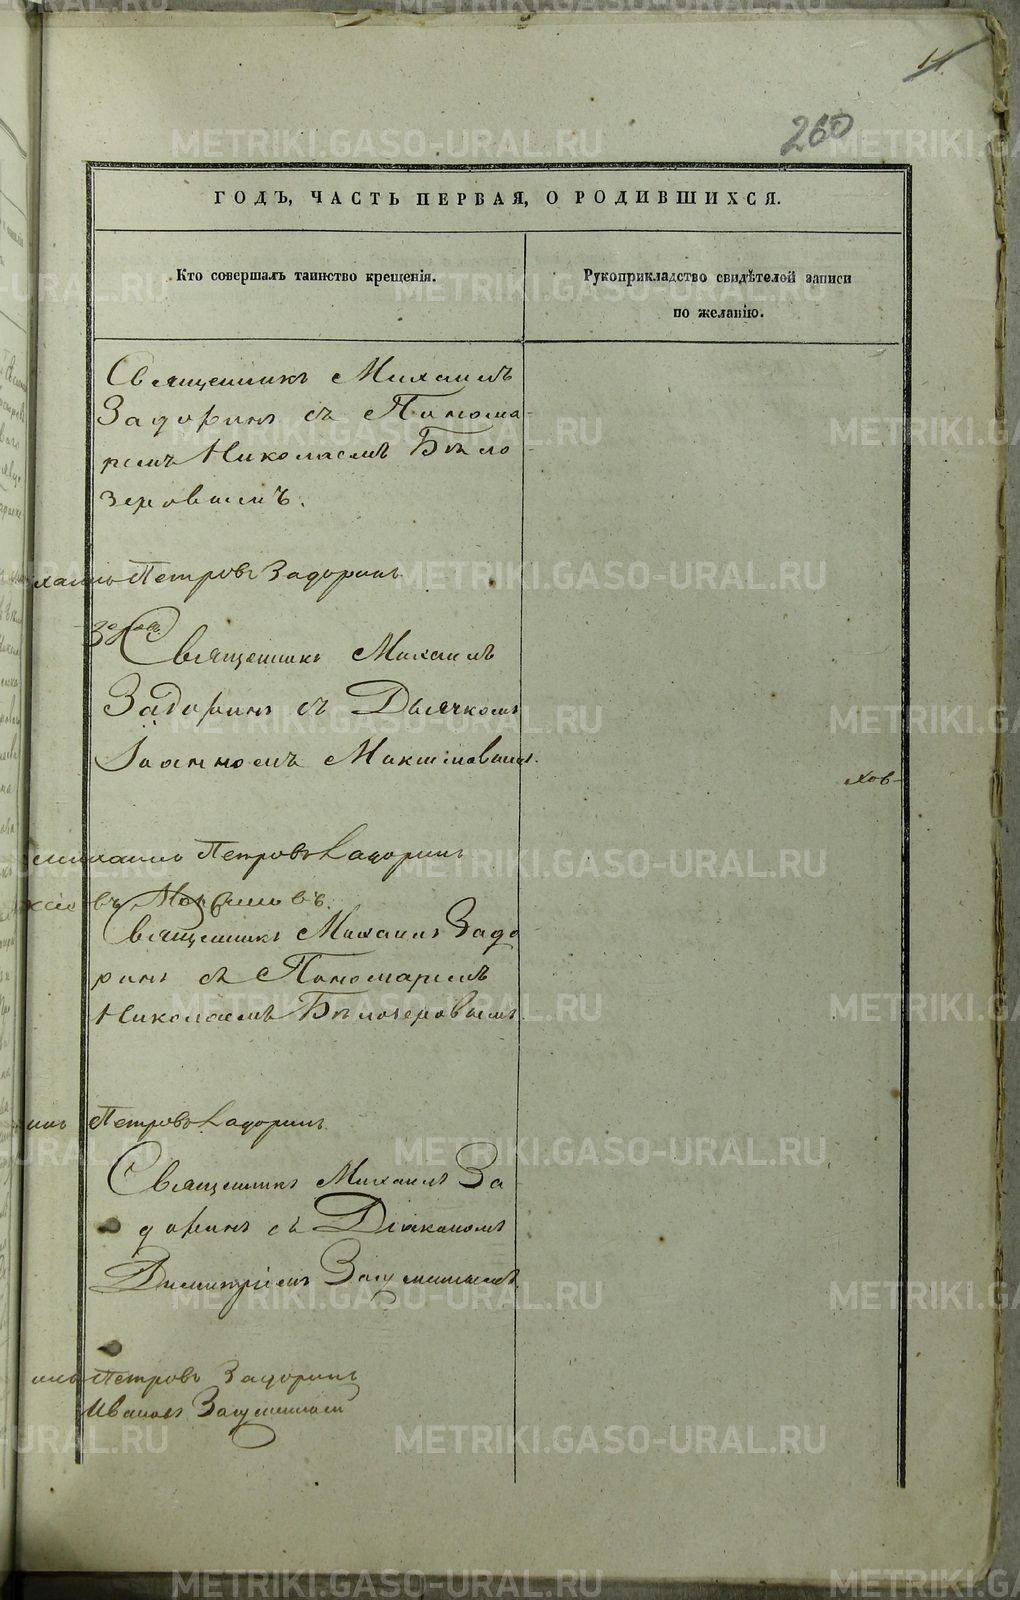 11
260
ГОДЪ, ЧАСТЬ ПЕРВАЯ, О РОДИВШИХСЯ.
Кто совершалъ таинство крещенія.
Рукоприкладство свидѣтелей записи
по желанію.
Священникъ Михаилъ
Задоринъ съ Понома-
ремъ Николаемъ Бѣло-
зеровымъ.
хаилъ Петровъ Задоринъ
зеров.
Священникъ Михаилъ
Задоринъ съ Дьячкомъ
Іоанномъ
хов-
Михаилъ Петровъ Задоринъ
Священникъ Михаилъ Задо
ринъ съ Пономаремъ
Николаемъ Бѣлозеровымъ.
илъ Петровъ Задоринъ
Священникъ Михаилъ За-
доринъ съ Діакономъ
Димитріемъ
илъ Петровъ Задоринъ
Ивановъ
METRIKI.GASO-URAL.RU